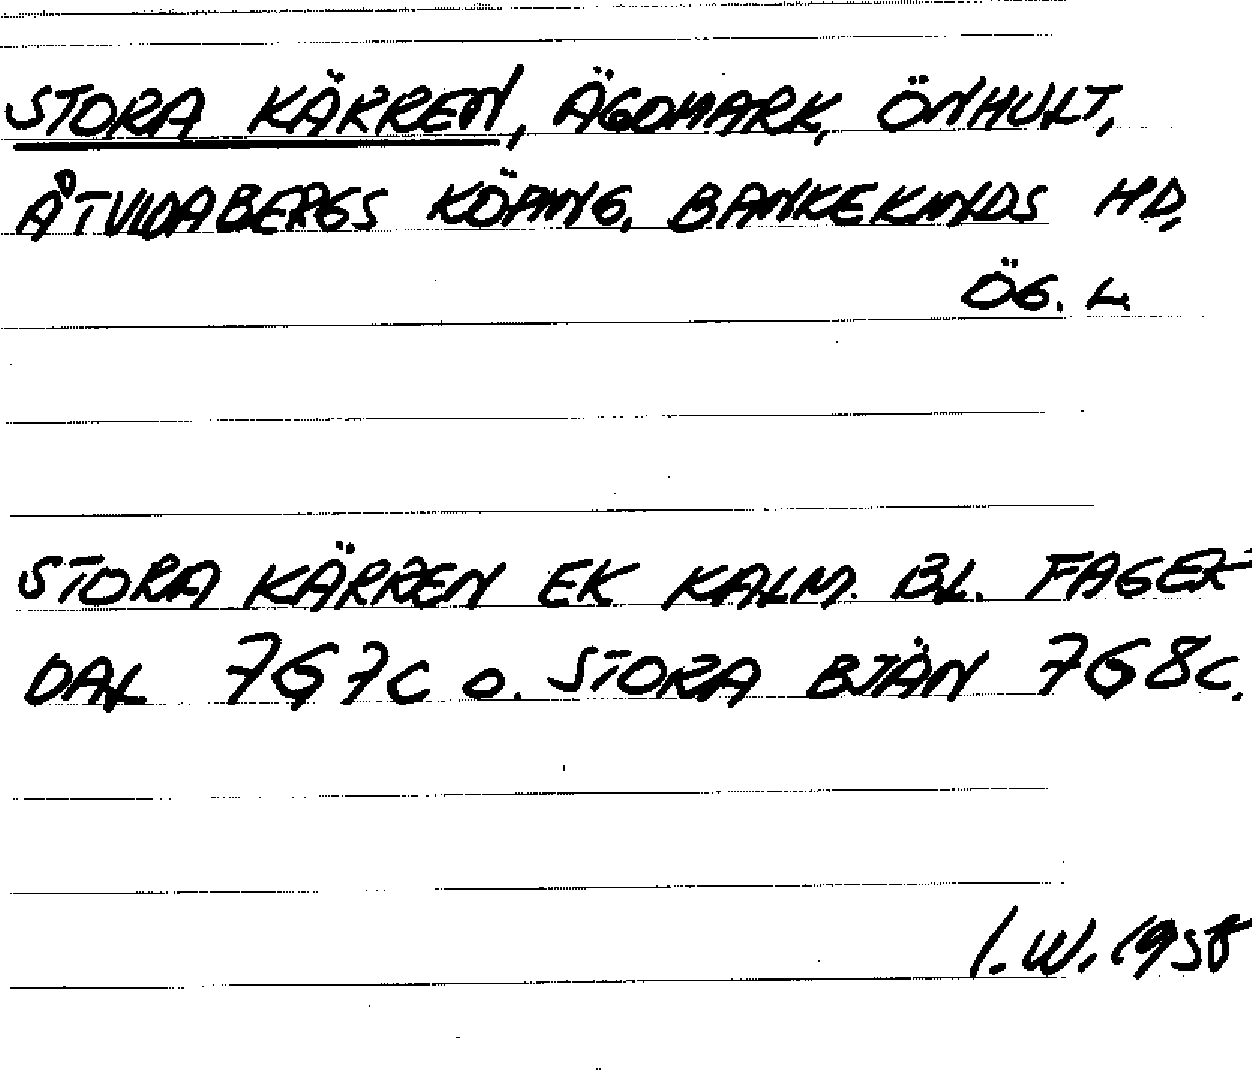 STORA KÄRREN, ÄGOMARK, ÖNHULT,
ÅTVIDABERGS KÖPING, BANKEKINDS HD,
ÖG. L.
STORA KÄRREN EK KALM. BL. FAGER
DAL 7G7C O. STORA BJÄN 7G8C.
I.W. 1958